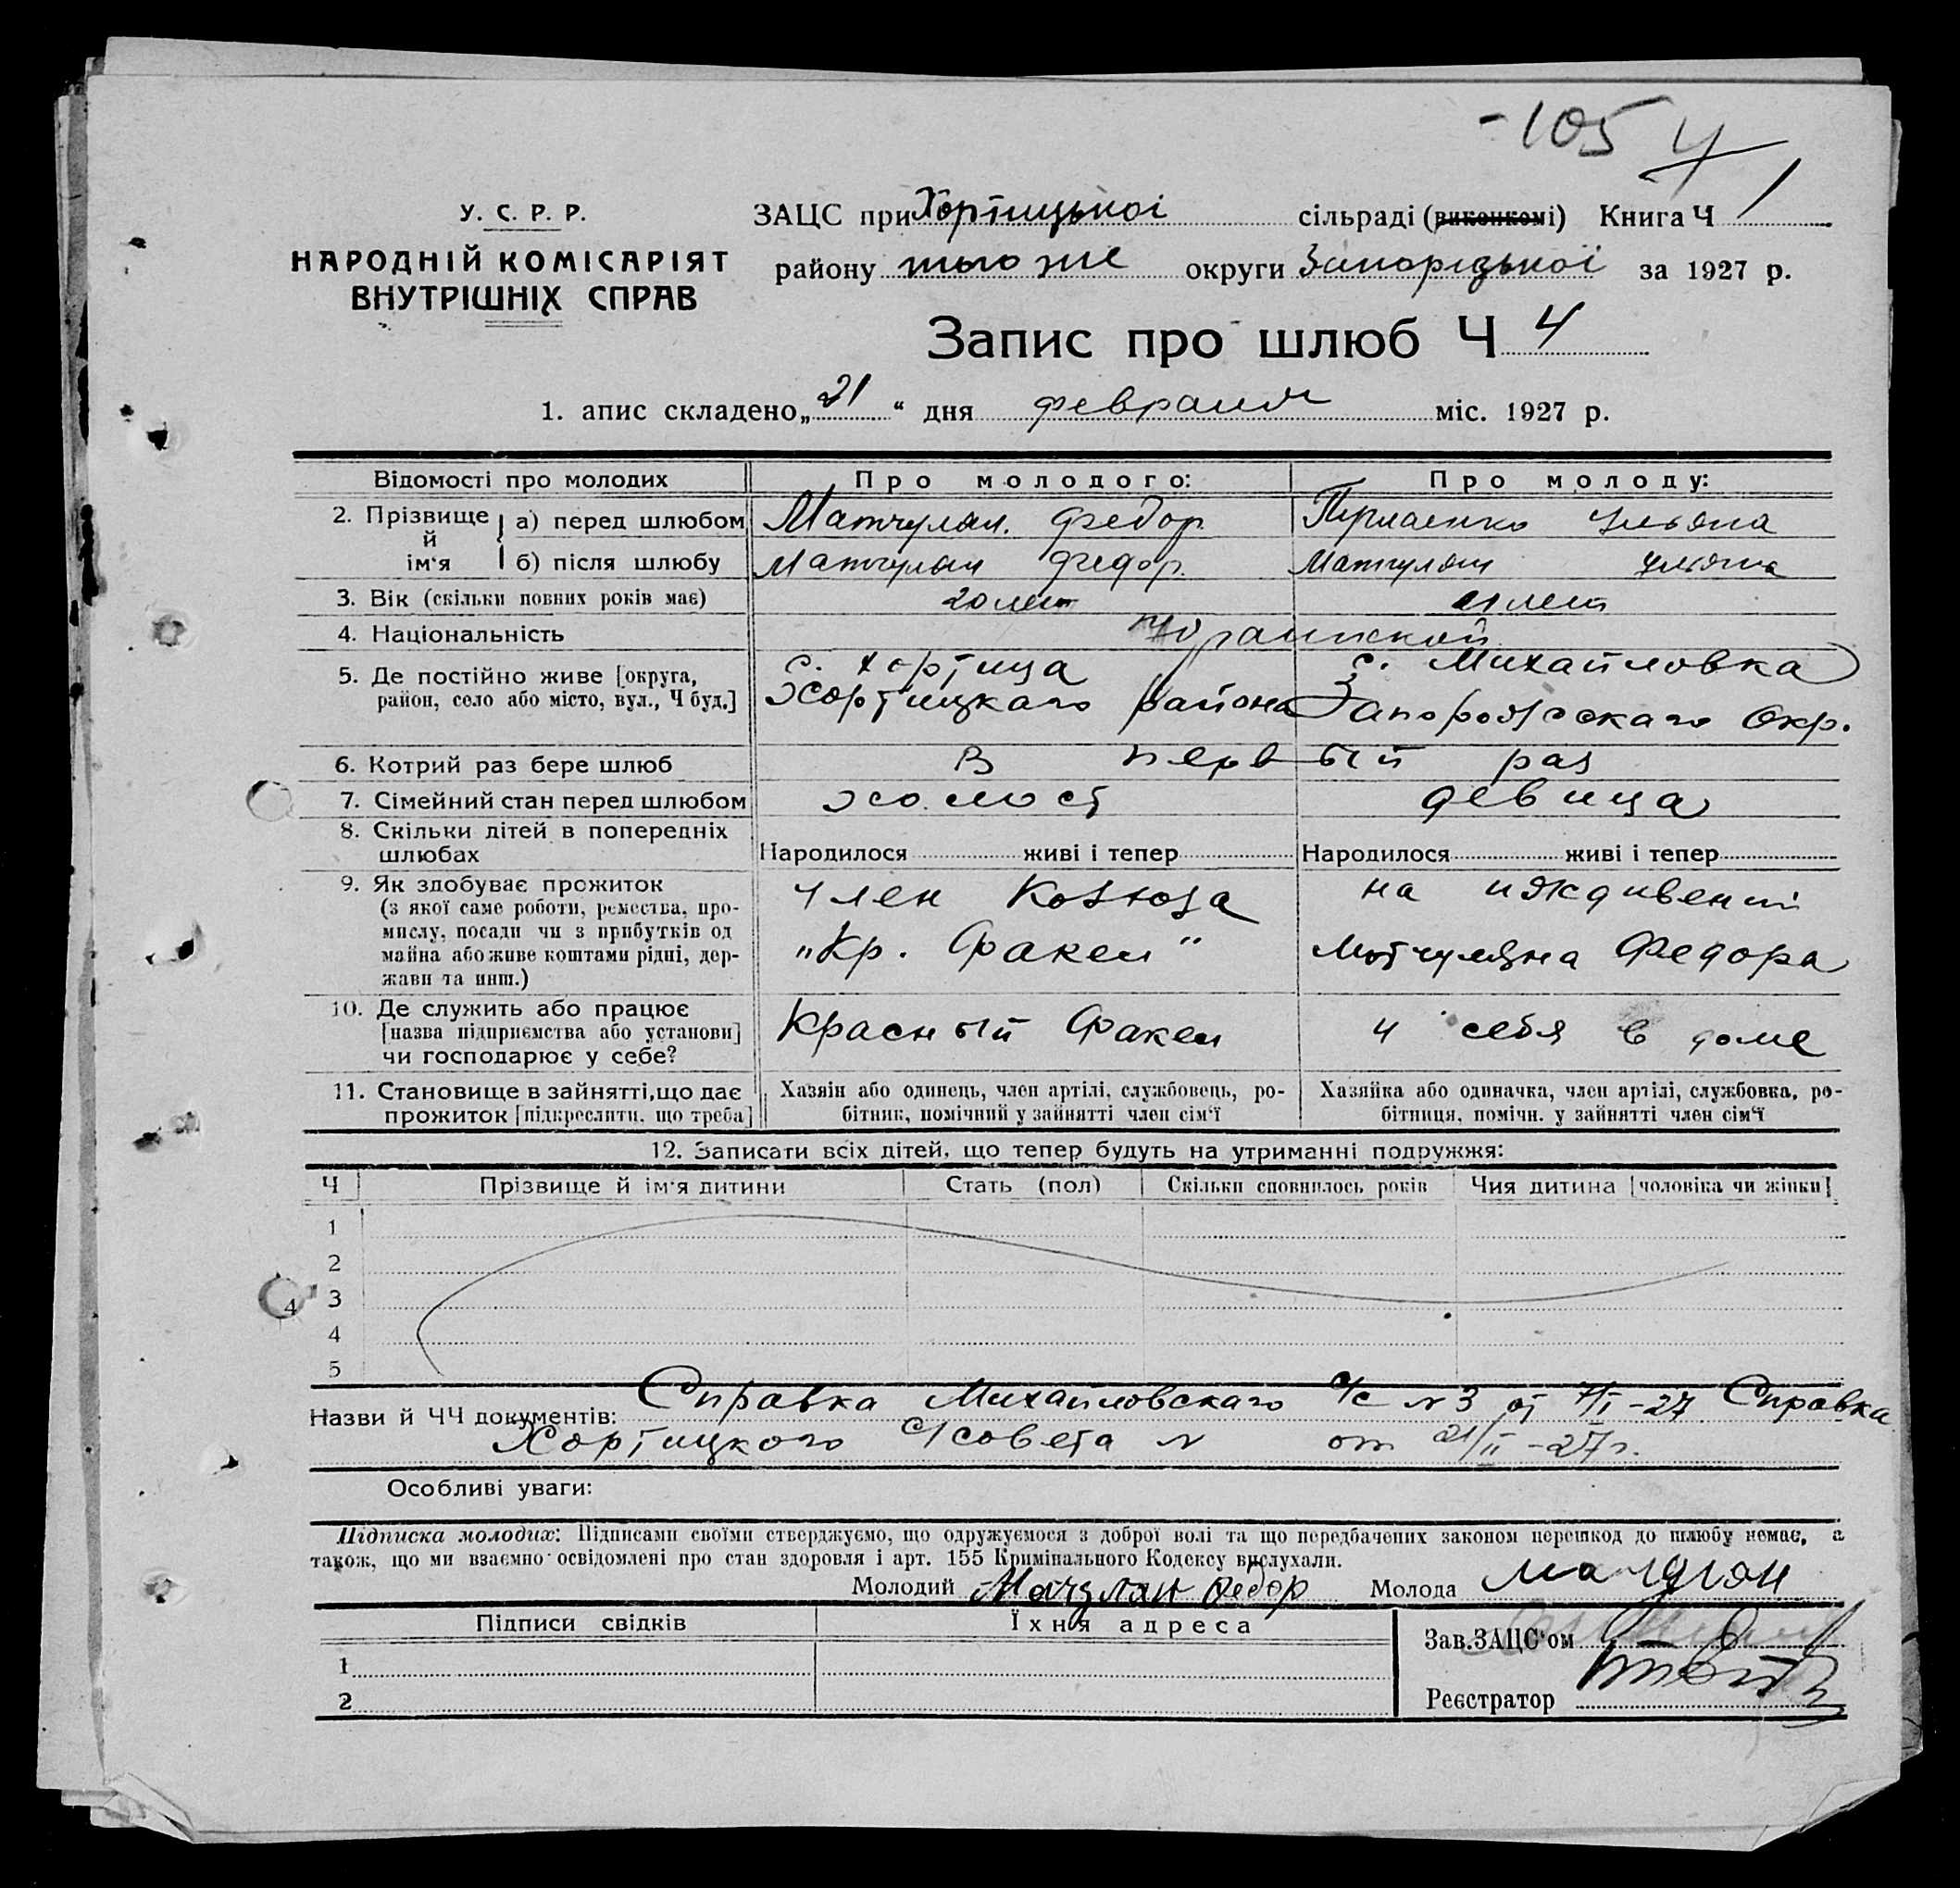 -105 4
У. С. Р. Р.
НАРОДНІЙ КОМІСАРІЯТ
ВНУТРІШНІХ СПРАВ
ЗАЦС при Хортицькоі сільраді (виконкомі) Книга Ч 1
району того же округи Запорізькоі за 1927 р.
Запис про шлюб Ч 4
1. апис складено „21“ дня февраля міс. 1927 р.
Відомості про молодих Про молодого: Про молоду:
2. Прізвище й ім'я а) перед шлюбом Матчулян. Федор. Ульяна
б) після шлюбу Матчулян Федор. Матчулян Ульяна
3. Вік (скільки повних років має) 20 лет 21 лет
4. Національність
5. Де постійно живе [округа, с. Хортица с. Михайловка
район, село або місто, вул., Ч буд.] Хортицкаго района Запорожскаго Окр.
6. Котрий раз бере шлюб В первый раз
7. Сімейний стан перед шлюбом холост девица
8. Скільки дітей в попередніх
шлюбах Народилося живі і тепер Народилося живі і тепер
9. Як здобуває прожиток член на иждивении
(з якої саме роботи, ремества, про-
мислу, посади чи з прибутків од „Кр. Факел" Матчуляна Федора
майна або живе коштами рідні, дер-
жави та инш.)
10. Де служить або працює
[назва підприємства або установи] Красный Факел У себя в доме
чи господарює у себе?
11. Становище в зайнятті, що дає Хазяїн або одинець, член артілі, службовець, ро- Хазяйка або одиначка, член артілі, службовка, ро-
прожиток [підкреслити, що треба] бітник, помічний у зайнятті член сім'ї бітниця, помічн. у зайнятті член сім'ї
12. Записати всіх дітей, що тепер будуть на утриманні подружжя:
Ч Прізвище й ім'я дитини Стать (пол) Скільки сповнилось років Чия дитина [чоловіка чи жінки]
1
2
4 3
4
5
Назви й ЧЧ документів: Справка Михайловскаго с/с № 3 от 7/I-27 Справка
Хортицкого с/совета № от 21/II-27 г.
Особливі уваги:
Підписка молодих: Підписами своїми стверджуємо, що одружуємося з доброї волі та що передбачених законом перешкод до шлюбу немає, а
також, що ми взаємно освідомлені про стан здоровля і арт. 155 Кримінального Кодексу вислухали.
Молодий Мачулян Федор Молода
Підписи свідків Їхня адреса
Зав. ЗАЦС'ом
1
Реєстратор
2